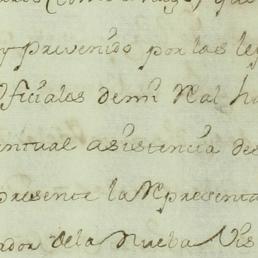 y prevenido por las le
oficiales de mi Real h
entual asistencia des
presente la Representa
ador de la Nueba Vis